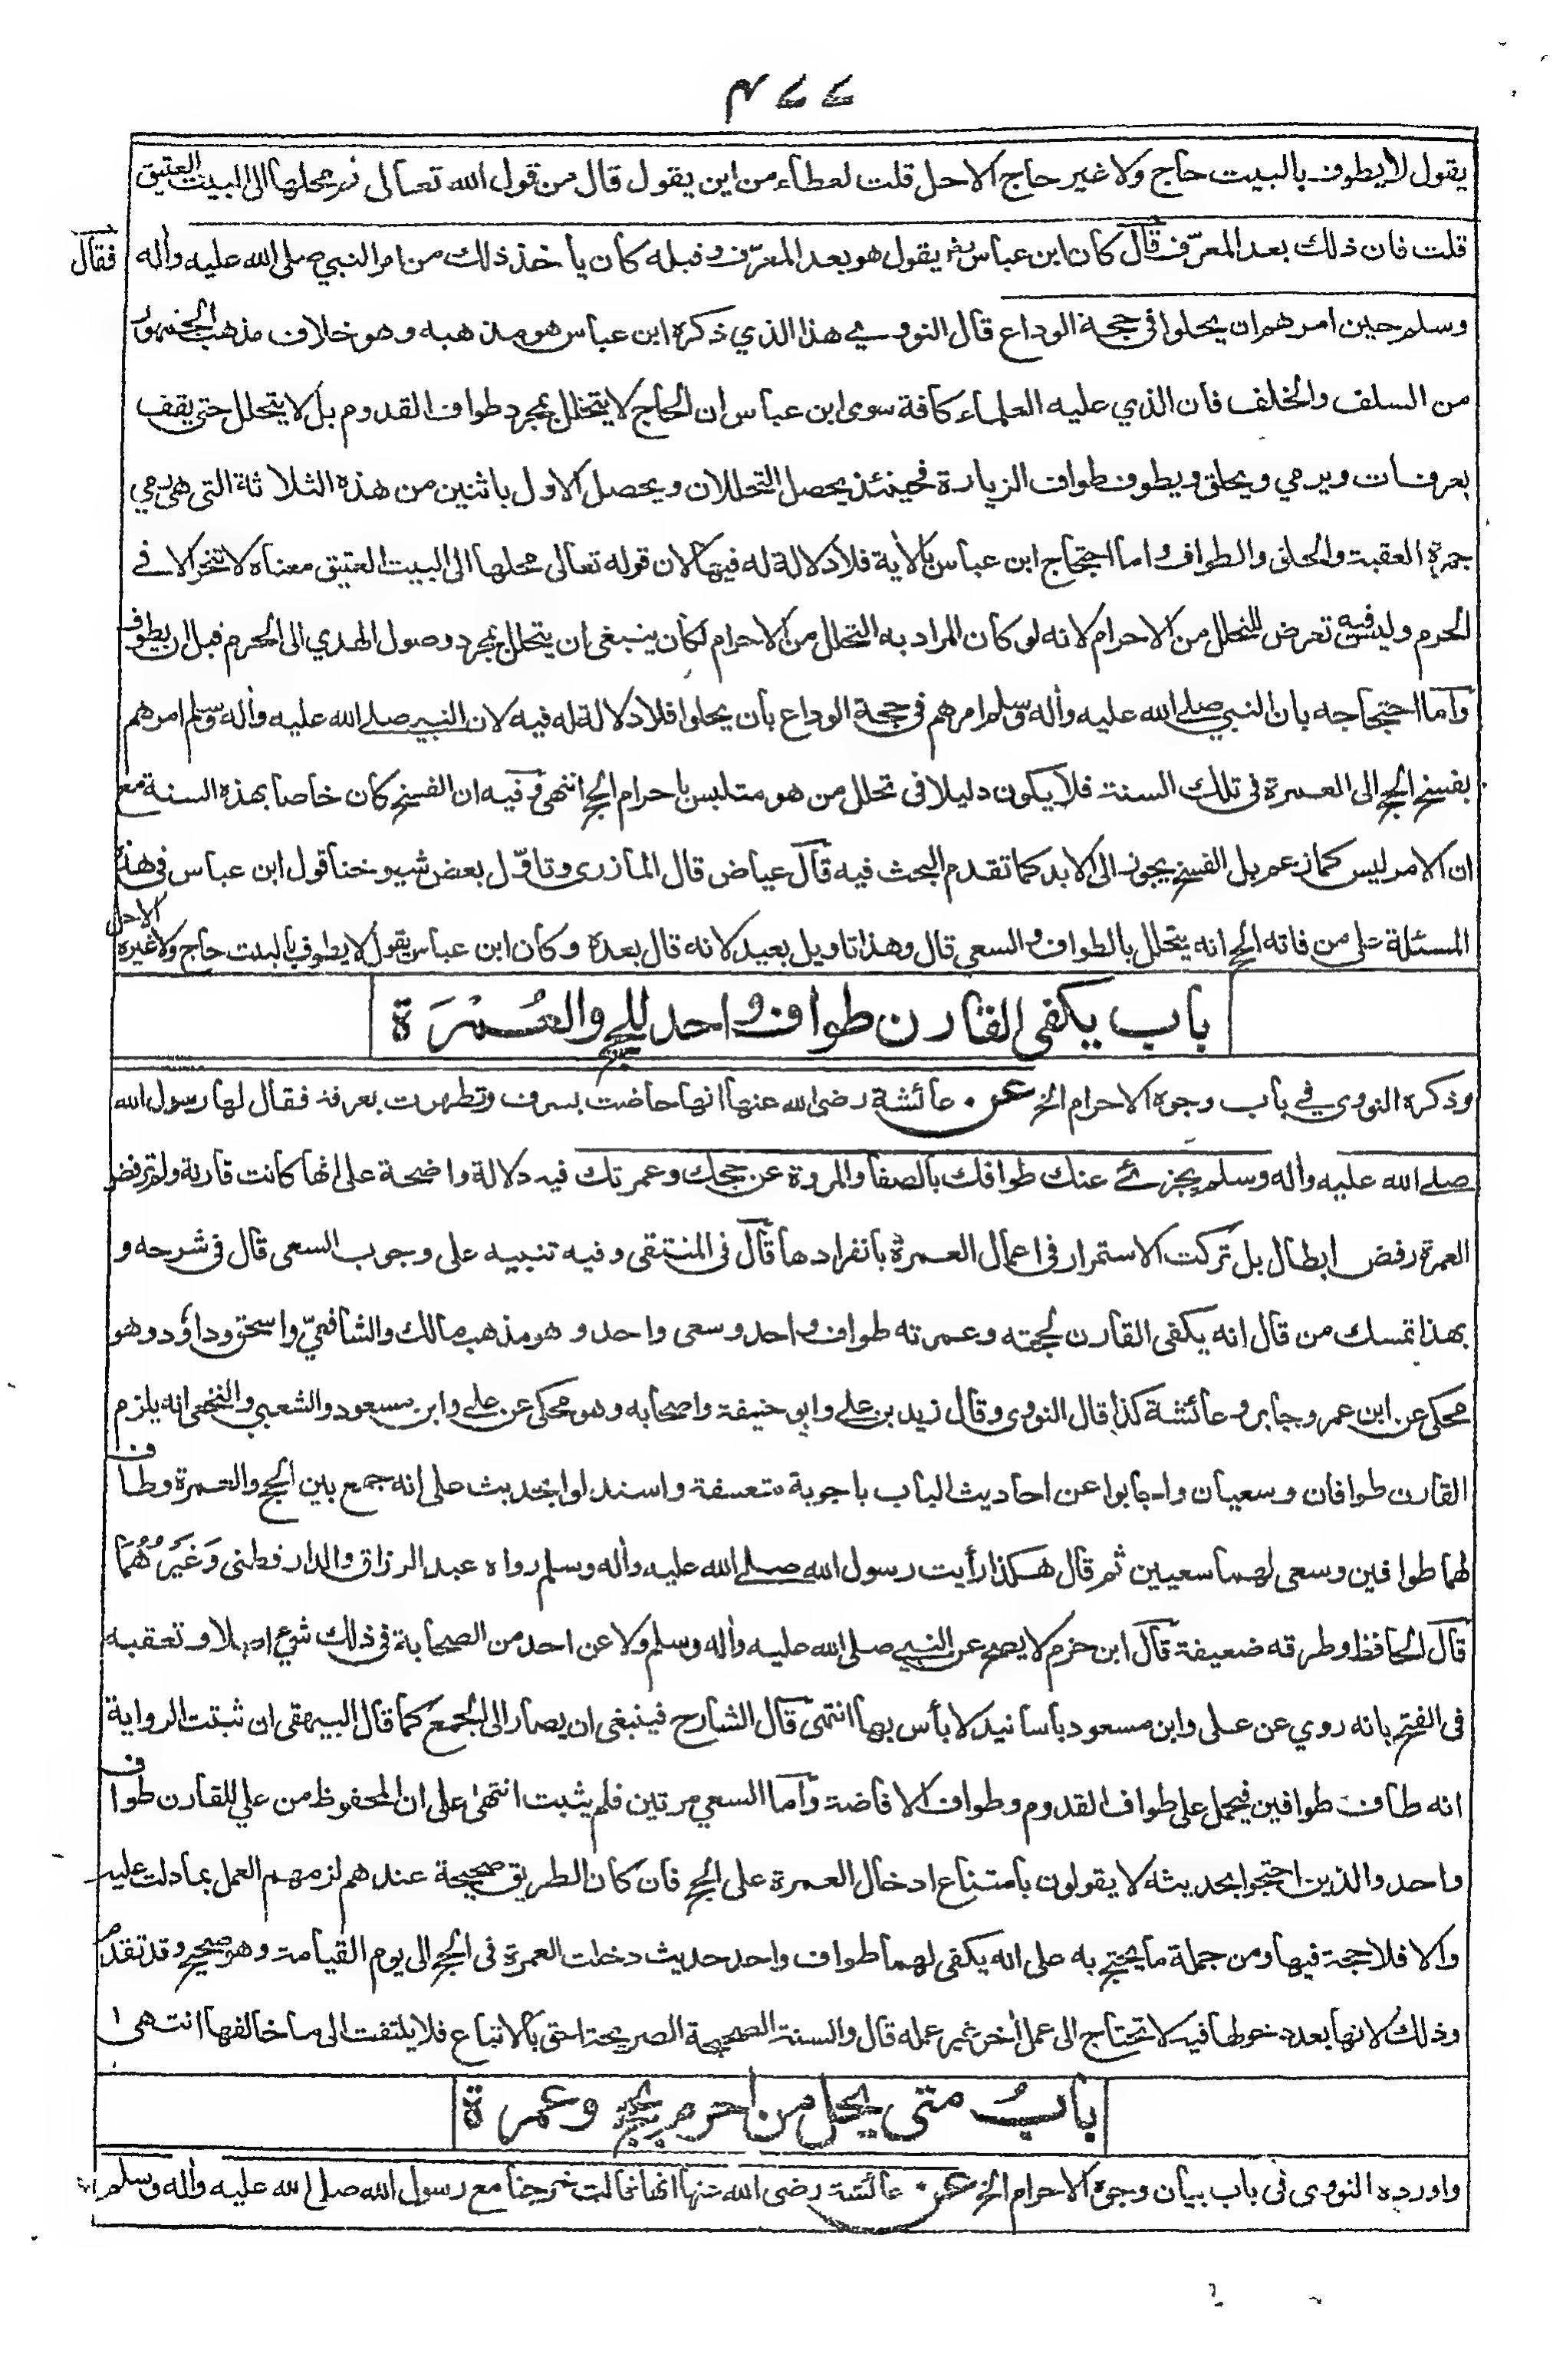 ٤٧٧
يقول لا يطوف بالبيت حاج ولا غير حاج الا حل قلت لعطاء من اين يقول قال من قول الله تعالى ثم محلها الى البيت العتيق
قلت فان ذلك بعد المعرّف قال كان ابن عباس يقول هو بعد المعرّف وقبله كان يأخذ ذلك من امر النبي صلى الله عليه وأله فقال
وسلم حين امرهم ان يحلوا فى حجة الوداع قال النووي هذا الذي ذكره ابن عباس هو مذهبه وهو خلاف مذهب الجمهور
من السلف والخلف فان الذي عليه العلماء كافة سوى ابن عباس ان الحاج لا يتحلل بمجرد طواف القدوم بل لا يتحلل حتى يقف
بعرفات ويرمي ويحلق ويطوف طواف الزيارة فحينئذ يحصل التحللان ويحصل الاول باثنين من هذه الثلاثة التى هى رمي
جمرة العقبة والحلق والطواف واما احتجاج ابن عباس بالأية فلا دلالة له فيها لان قوله تعالى محلها الى البيت العتيق معناه لا تنحر الا في
الحرم وليس فيه تعرض للتحلل من الاحرام لانه لو كان المراد به التحلل من الاحرام لكان ينبغى ان يتحلل بمجرد وصول الهدي الى الحرم قبل ان يطوف
وأما احتجاجه بان النبي صلى الله عليه وأله وسلم امرهم فى حجة الوداع بأن يحلوا فلا دلالة له فيه لان النبي صلى الله عليه وأله وسلم امرهم
بفسخ الحج الى العمرة فى تلك السنة فلا يكون دليلا فى تحلل من هو متلبس باحرام الحج انتهى وفيه ان الفسخ كان خاصا بهذه السنة مع
ان الامر ليس كما زعم بل الفسخ يجوز الى الابد كما تقدم البحث فيه قال عياض قال المازرى وتاوّل بعض شيوخنا قول ابن عباس فى هذه
المسئلة على من فاته الحج انه يتحلل بالطواف والسعى قال وهذا تاويل بعيد لانه قال بعده وكان ابن عباس يقول لا يطوف بالبيت حاج ولا غيره الا حل
باب يكفى القارن طواف واحد للحج والعمرة
وذكره النووى في باب وجوه الاحرام الخ عن عائشة رضى الله عنها انها حاضت بسرف وتطهرت بعرفة فقال لها رسول الله
صلى الله عليه وأله وسلم يجزئ عنك طوافك بالصفا والمروة عن حجك وعمرتك فيه دلالة واضحة على انها كانت قارنة ولم ترفض
العمرة رفض ابطال بل تركت الاستمرار فى اعمال العمرة بانفرادها قال فى المنتقى وفيه تنبيه على وجوب السعى قال فى شرحه و
بهذا تمسك من قال انه يكفى القارن لحجته وعمرته طواف واحد وسعى واحد وهو مذهب مالك والشافعيّ واسحق وداؤد وهو
محكى عن ابن عمر وجابر وعائشة كذا قال النووى وقال زيد بن على وابو حنيفة واصحابه وهو محكى عن على وابن مسعود والشعبي والنخعى انه يلزم
القارن طوافان وسعيان واجابوا عن احاديث الباب باجوبة متعسفة واستدلوا بحديث على انه جمع بين الحج والعمرة وطاف
لهما طوافين وسعى لهما سعيين ثم قال هكذا رأيت رسول الله صلى الله عليه وأله وسلم رواه عبد الرزاق والدارقطنى وَغَيرُهُمَا
قال الحافظ وطرقه ضعيفة قال ابن حزم لا يصح عن النبي صلى الله عليه وأله وسلم ولا عن احد من الصحابة فى ذلك شئ اصلا وتعقبه
فى الفتح بانه روي عن على وابن مسعود بأسانيد لا بأس بها انتهى قال الشارح فينبغى ان يصار الى الجمع كما قال البيهقى ان ثبتت الرواية
انه طاف طوافين فيحمل على طواف القدوم وطواف الافاضة وأما السعي مرتين فلم يثبت انتهى على ان المحفوظ من علي للقارن طواف
واحد والذين احتجوا بحديثه لا يقولون بامتناع ادخال العمرة على الحج فان كان الطريق صحيحة عندهم لزمهم العمل بما دلت عليه
والا فلا حجة فيها ومن جملة ما يحتج به على انه يكفى لهما طواف واحد حديث دخلت العمرة فى الحج الى يوم القيامة وهو صحيح وقد تقدم
وذلك لانها بعد دخولها فيه لا تحتاج الى عمل أخر غير عمله قال والسنة الصحيحة الصريحة احق بالاتباع فلا يلتفت الى ما خالفها انتهى
باب متى يحل من احرم بحج وعمرة
واورده النووى فى باب بيان وجوه الاحرام الخ عن عائشة رضى الله عنها انها قالت خرجنا مع رسول الله صلى الله عليه وأله وسلم